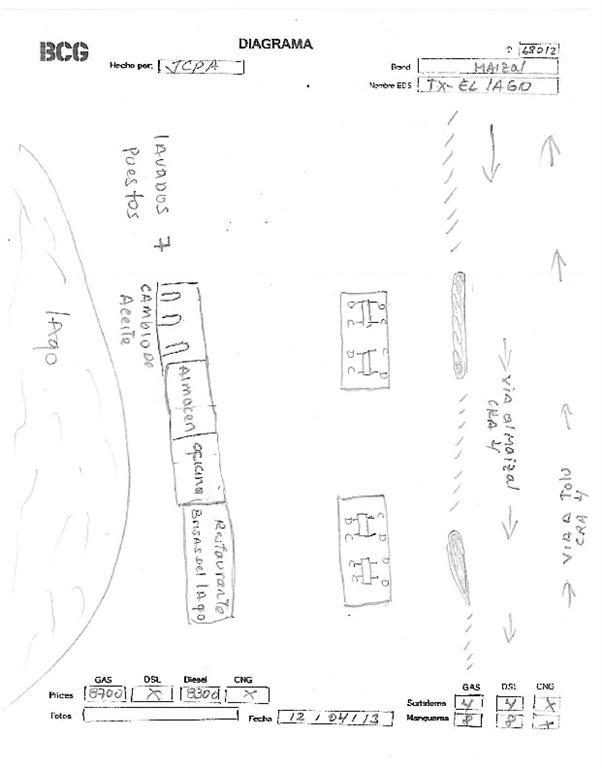 BCG
DIAGRAMA
48012
Hecho por: JCPA
Band MAIZAl
Nombre EDS TX-EL lAGO
lAVADOS 7
Puestos
CAMBIO DE
Aceite
lAgo
Almacen
oficina
Restaurante
BRISAS DEl lAgo
D D
C C
C D
D C
C D
D C
VIA al maizal
CRA 4
VIA a Tolu
CRA 4
GAS DSL Diesel CNG
Prices 8700 X 8300 X
Fotos
Fecha 12/04/13
GAS DSL CNG
Surtidores 4 4 X
Mangueras 8 8 X